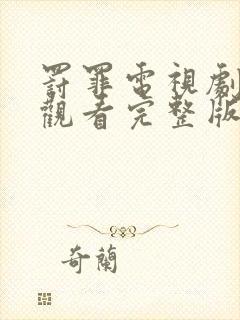 罰罪電視劇
觀看完整版
奇蘭